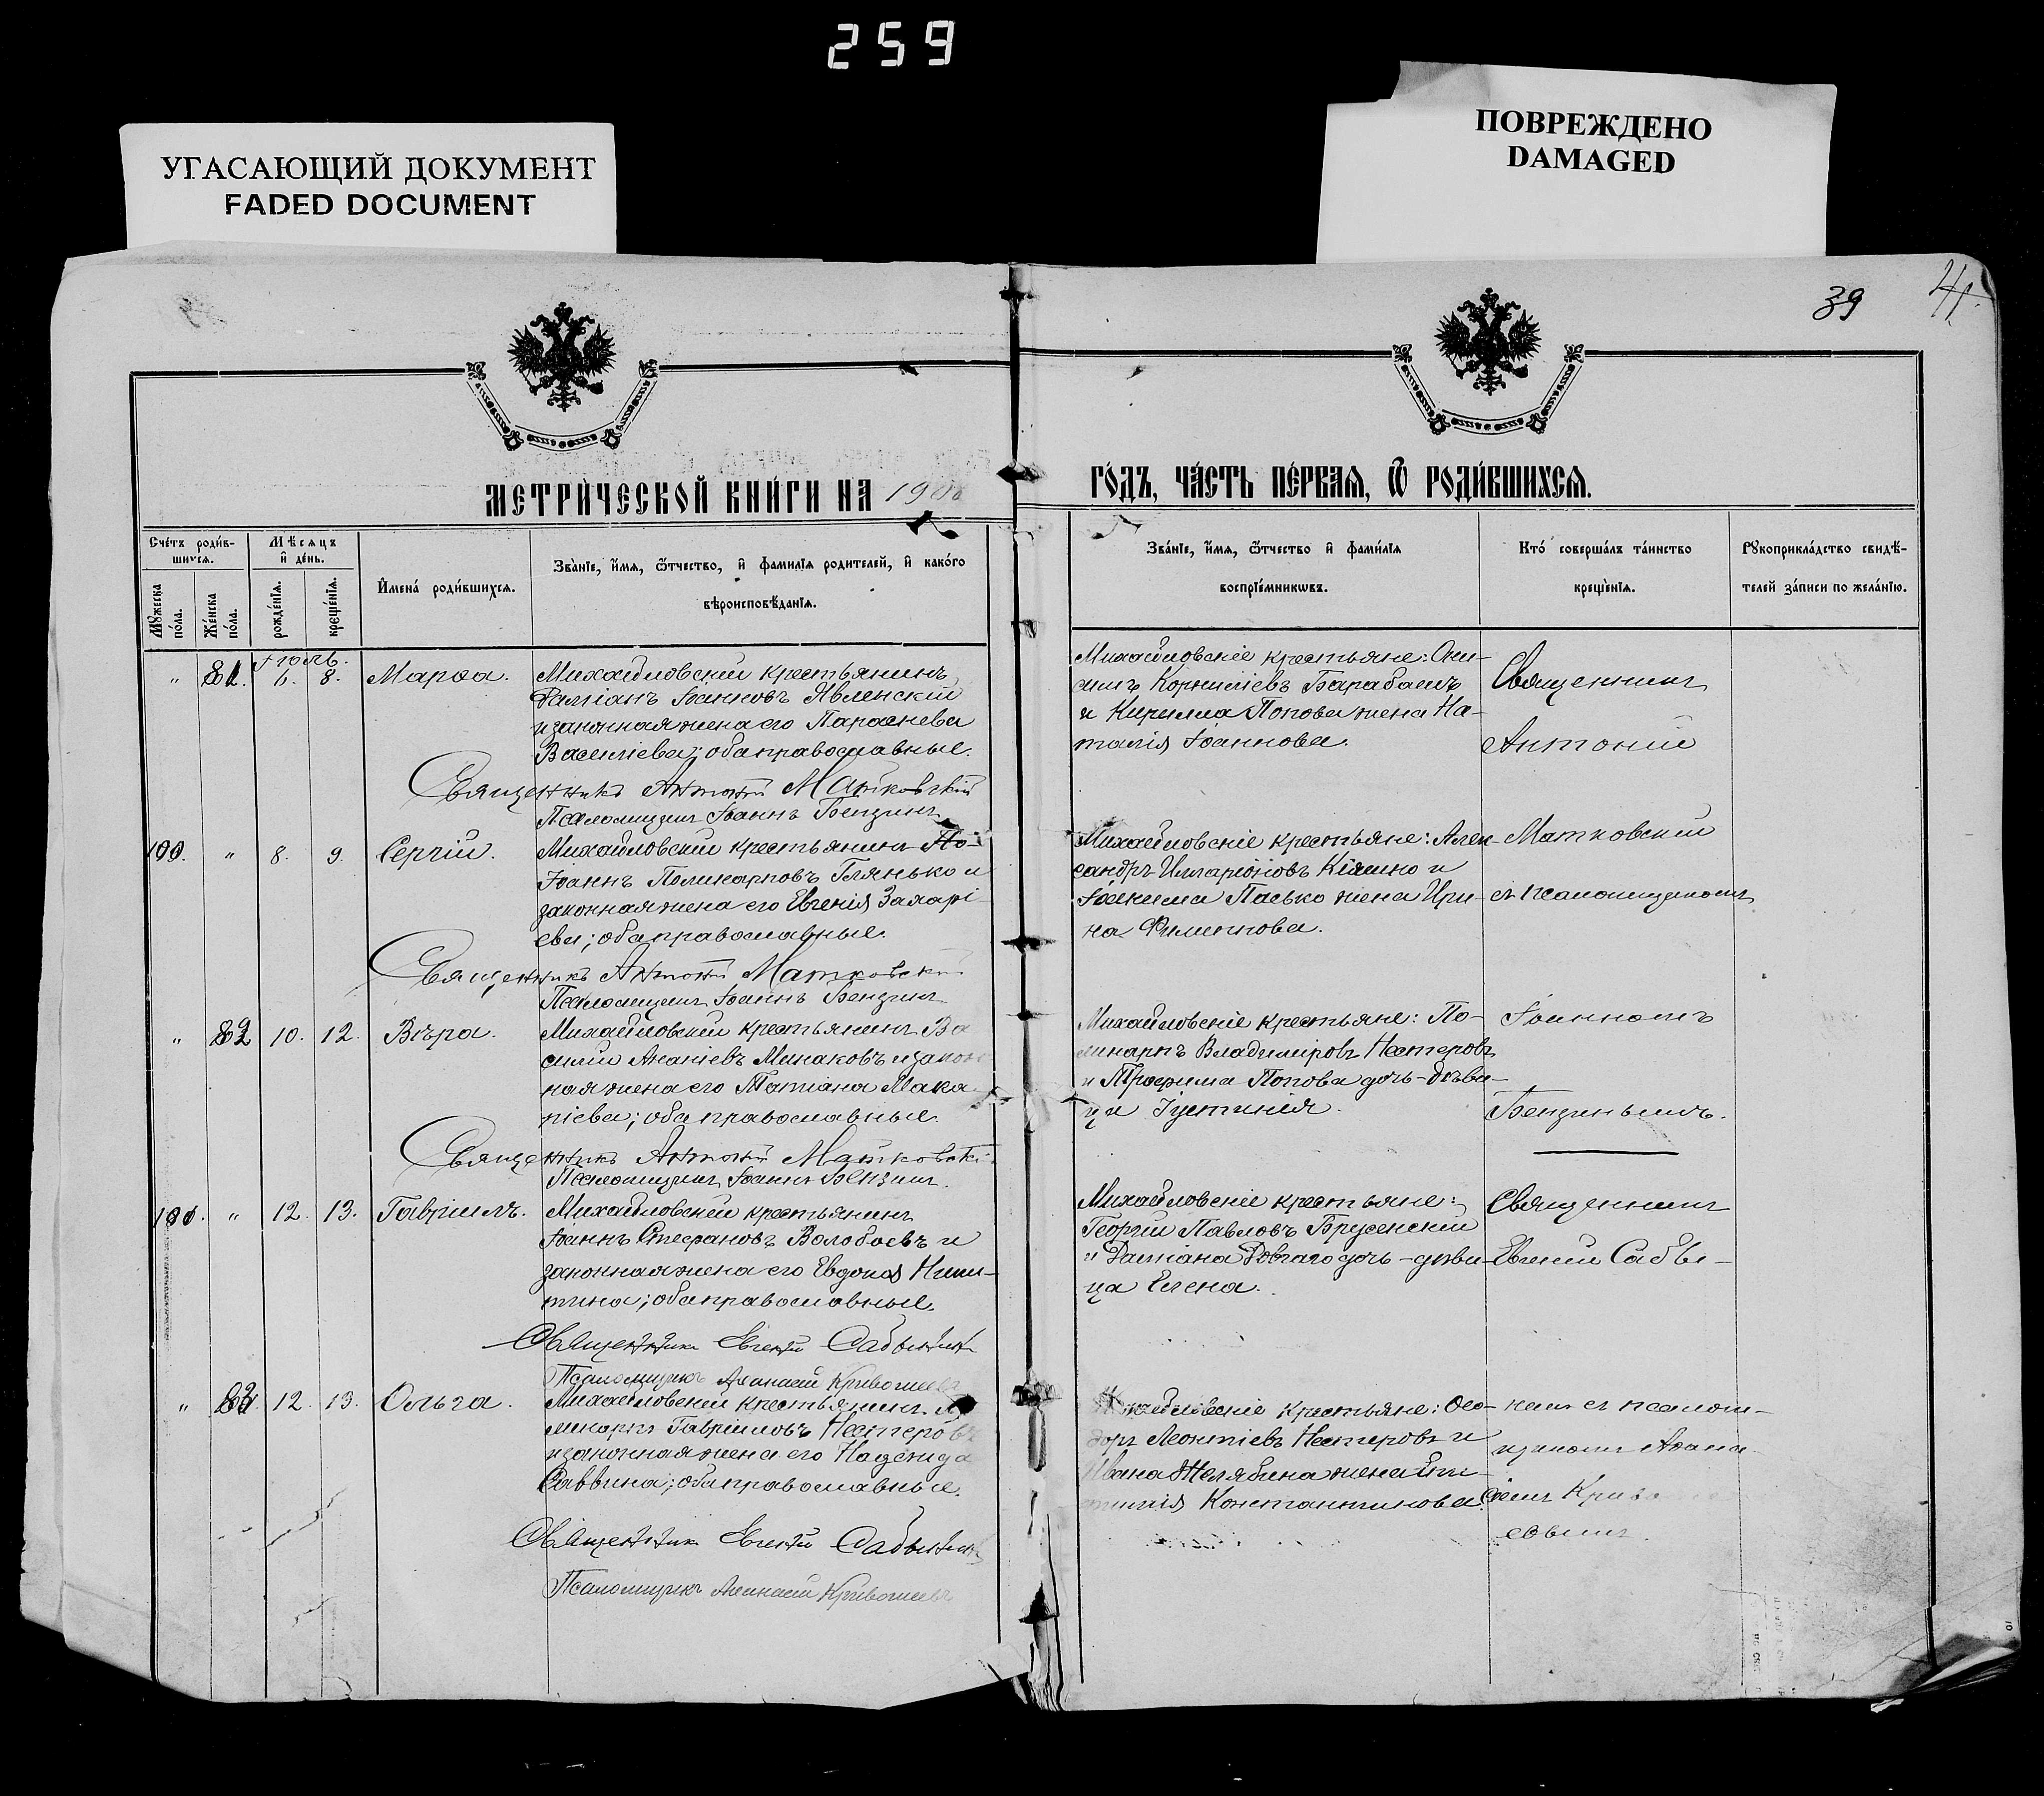 259
УГАСАЮЩИЙ ДОКУМЕНТ
FADED DOCUMENT
ПОВРЕЖДЕНО
DAMAGED
39
41.
МЕТРИ́ЧЕСКОЙ КНИ́ГИ НА 190
ГО́ДЪ, ЧА́СТЬ ПЕ́РВАѦ, Ѿ РОДИ́ВШИХСѦ.
Сче́тъ роди́в-
шихсѧ.
Мѣсѧцъ
и҆ де́нь.
Мꙋ́жеска по́ла.
Же́нска по́ла.
рожде́нїѧ.
креще́нїѧ.
И҆мена̀ роди́вшихсѧ.
Зва́нїе, и҆́мѧ, ѻ҆́тчество, и҆ фами́лїѧ роди́телей, и҆ како́гѡ
вѣроисповѣ́данїѧ.
Зва́нїе, и҆́мѧ, ѻ҆́тчество и҆ фами́лїѧ
воспрїе́мникѡвъ.
Кто̀ соверша́лъ та́инство
креще́нїѧ.
Рꙋкоприкла́дство свидѣ́-
телей за́писи по жела́нїю.
Іюль.
" 81. 6. 8. Марѳа.
Михайловскій крестьянинъ
Даміанъ Іоанновъ Явленскій
и законная жена его Параскева
Василіева; оба православные.
Священникъ Антоній Матковскій
Псаломщикъ Іоаннъ Бензинъ
Михайловскіе крестьяне: Они-
симъ Корниліевъ Барабашъ
и Кирилла Попова жена На-
талія Іоаннова.
Священникъ
Антоній
100. " 8. 9. Сергій.
Михайловскій крестьянинъ
Іоаннъ Поликарповъ Глянько и
законная жена его Евгенія Захарі-
ева; оба православные.
Священникъ Антоній Матковскій
Псаломщикъ Іоаннъ Бензинъ
Михайловскіе крестьяне: Алек-
сандръ Илларіоновъ Кіяшко и
Іоакима Пасько жена Ири-
на Филиппова.
Матковскій
съ псаломщикомъ
" 82. 10. 12. Вѣра.
Михайловскій крестьянинъ Ва
силій Ананіевъ Минаковъ и закон
ная жена его Татіана Мака-
ріева; оба православные.
Священникъ Антоній Матковскій
Псаломщикъ Іоаннъ Бензинъ.
Михайловскіе крестьяне: По-
ликарпъ Владиміровъ Нестеровъ
и Трофима Попова дочь-дѣви-
ца Іустинія.
Іоанномъ
Бензинымъ.
101. " 12. 13. Гавріилъ.
Михайловскій крестьянинъ
Іоаннъ Стефановъ Волобоевъ и
законная жена его Евдокія Ники-
тина; оба православные.
Священникъ Евгеній Сабынинъ
Псаломщикъ Аѳанасій Кривошеевъ
Михайловскіе крестьяне:
Георгій Павловъ Бруженскій
и Даміана Довгаго дочь-дѣви-
ца Елена.
Священникъ
Евгеній Сабы-
" 83. 12. 13. Ольга.
Михайловскій крестьянинъ
ликарпъ Гавріиловъ Нестеровъ
и законная жена его Надежда
Саввина; оба православные.
Священникъ Евгеній Сабынинъ
Псаломщикъ Аѳанасій Кривошеевъ
Михайловскіе крестьяне: Ѳео-
доръ Леонтіевъ Нестеровъ и
Ивана Желябина жена
Константинова.
нинъ съ псалом-
щикомъ Аѳана-
сіемъ Криво
евымъ.